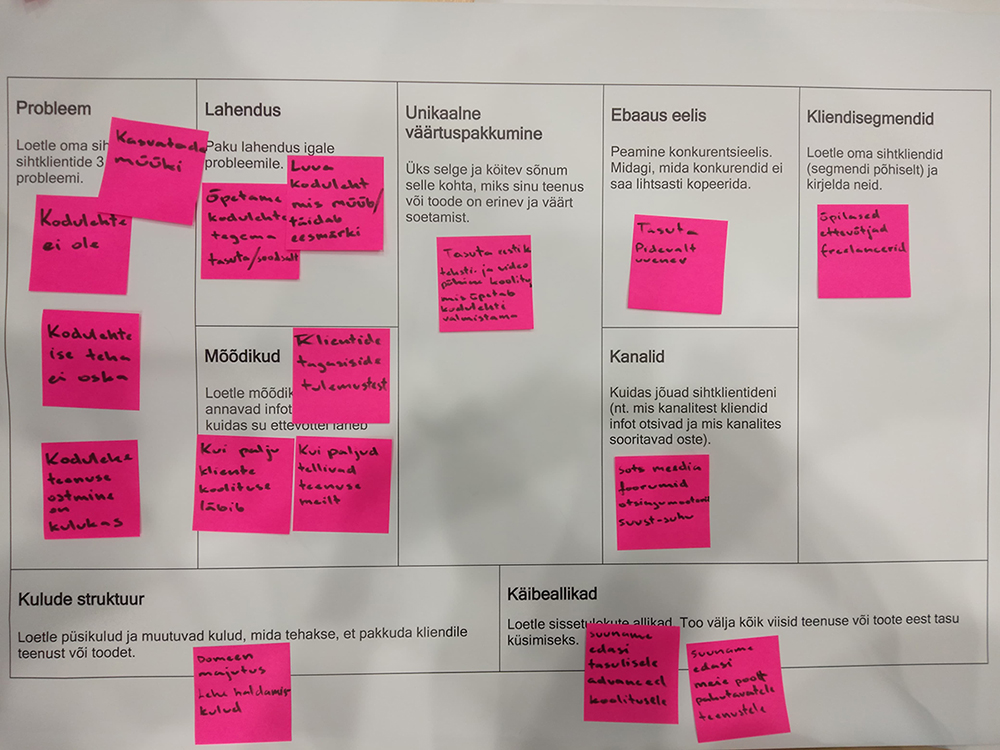 Probleem
Loetle oma sih
sihtklientide 3
probleemi.
Kasvatada
müüki
Kodulehte
ei ole
Kodulehte
ise teha
ei oska
Kodulehe
teenuse
ostmine
on
kulukas
Lahendus
Paku lahendus igale
probleemile.
Õpetame
kodulehte
tegema
tasuta/soodsalt
Luua
koduleht
mis müüb/
täidab
eesmärki
Mõõdikud
Loetle mõõdik
annavad infot
kuidas su ettevõttel läheb
Klientide
tagasiside
tulemustest
Kui palju
kliente
koolituse
läbib
Kui paljud
tellivad
teenuse
meilt
Unikaalne
väärtuspakkumine
Üks selge ja köitev sõnum
selle kohta, miks sinu teenus
või toode on erinev ja väärt
soetamist.
Tasuta eestik
teksti- ja video
põhine koolitus
mis õpetab
kodulehti
valmistama
Ebaaus eelis
Peamine konkurentsieelis.
Midagi, mida konkurendid ei
saa lihtsasti kopeerida.
Tasuta
Pidevalt
uuenev
Kanalid
Kuidas jõuad sihtklientideni
(nt. mis kanalitest kliendid
infot otsivad ja mis kanalites
sooritavad oste).
sots meedia
foorumid
otsingumootorid
suust-suhu
Kliendisegmendid
Loetle oma sihtkliendid
(segmendi põhiselt) ja
kirjelda neid.
õpilased
ettevõtjad
freelancerid
Kulude struktuur
Loetle püsikulud ja muutuvad kulud, mida tehakse, et pakkuda kliendile
teenust või toodet.
Domeen
majutus
Lehe haldamis
kulud
Käibeallikad
Loetle sissetulekute allikad. Too välja kõik viisid teenuse või toote eest tasu
küsimiseks.
suuname
edasi
tasulisele
advanced
koolitusele
suuname
edasi
meie poolt
pakutavatele
teenustele